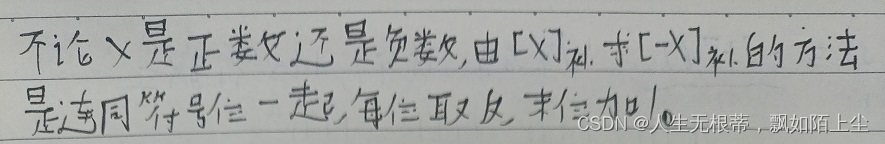 不论X是正数还是负数,由[X]补.求[-X]补.的方法
是连同符号位一起,每位取反,末位加1。
CSDN @人生无根蒂，飘如陌上尘